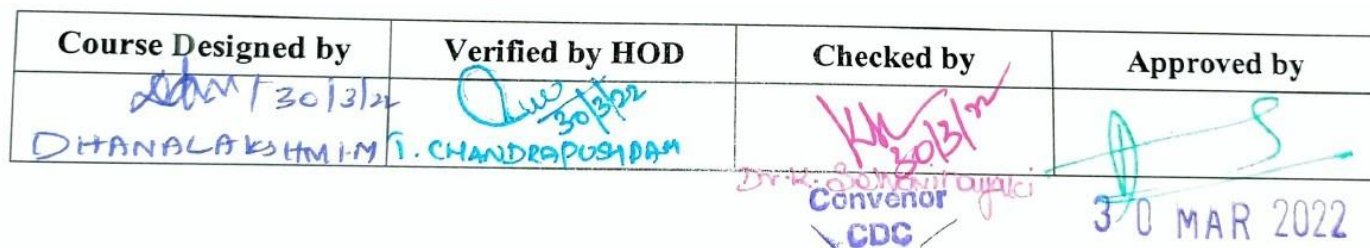 Course Designed by Verified by HOD Checked by Approved by
30/3/22 30/3/22 30/3/22
DHANALAKSHMI.M T. CHANDRAPUSHPAM
Dr. K.
Convenor
CDC
30 MAR 2022